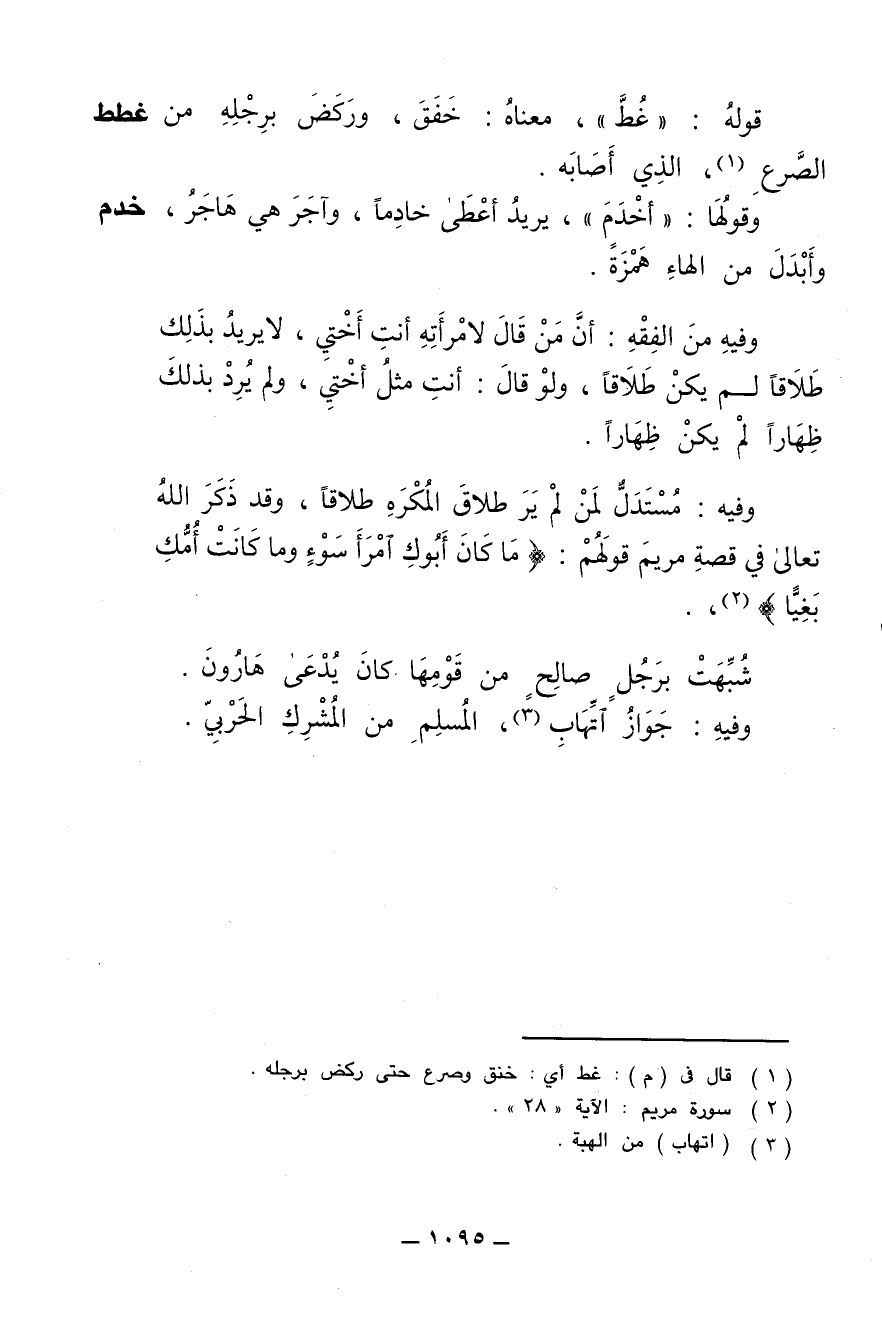 قولهُ : « غُطَّ » ، معناهُ : خَفَقَ ، ورَكَضَ برِجْلِهِ من غطط
الصَّرعِ (١)، الذِي أَصَابَه .
وَقولُهَا : « أخْدَمَ » ، يريدُ أعْطَىٰ خادِماً ، وآجَرَ هي هَاجَرُ ، خدم
وأَبْدَلَ من الهاءِ هَمْزَةً .
وفيهِ منَ الفِقْهِ : أنَّ مَنْ قَالَ لامْرأَتِهِ أنتِ أَخْتيِ ، لايريدُ بذَلِك
طَلَاقاً لـم يكنْ طَلَاقاً ، ولوْ قالَ : أنتِ مثلُ أخْتيِ ، ولم يُرِدْ بذلكَ
ظِهَاراً لمْ يكنْ ظِهَاراً .
وفيه : مُسْتَدَلٌّ لمَنْ لمْ يَرَ طلاقَ المُكْرَهِ طلاقاً ، وقد ذَكَرَ اللهُ
تعالىٰ في قصةِ مريمَ قولَهُمْ : ﴿ مَا كَانَ أَبُوكِ ٱمْرَأَ سَوْءٍ وما كَانَتْ أُمُّكِ
بَغِيًّا ﴾ (٢)، .
شُبِّهَتْ برَجُلٍ صالِحٍ من قَوْمِهَا كانَ يُدْعَىٰ هَارُونَ .
وفيهِ : جَوَازُ ٱتِّهَابِ (٣)، المُسلِمِ من المُشْرِكِ الحَرْبيّ .
( ١ ) قال فى ( م ) : غط أي : خنق وصرع حتى ركض برجله .
( ٢ ) سورة مريم : الآية « ٢٨ » .
( ٣ ) ( اتهاب ) من الهبة .
ــ ١٠٩٥ ــ